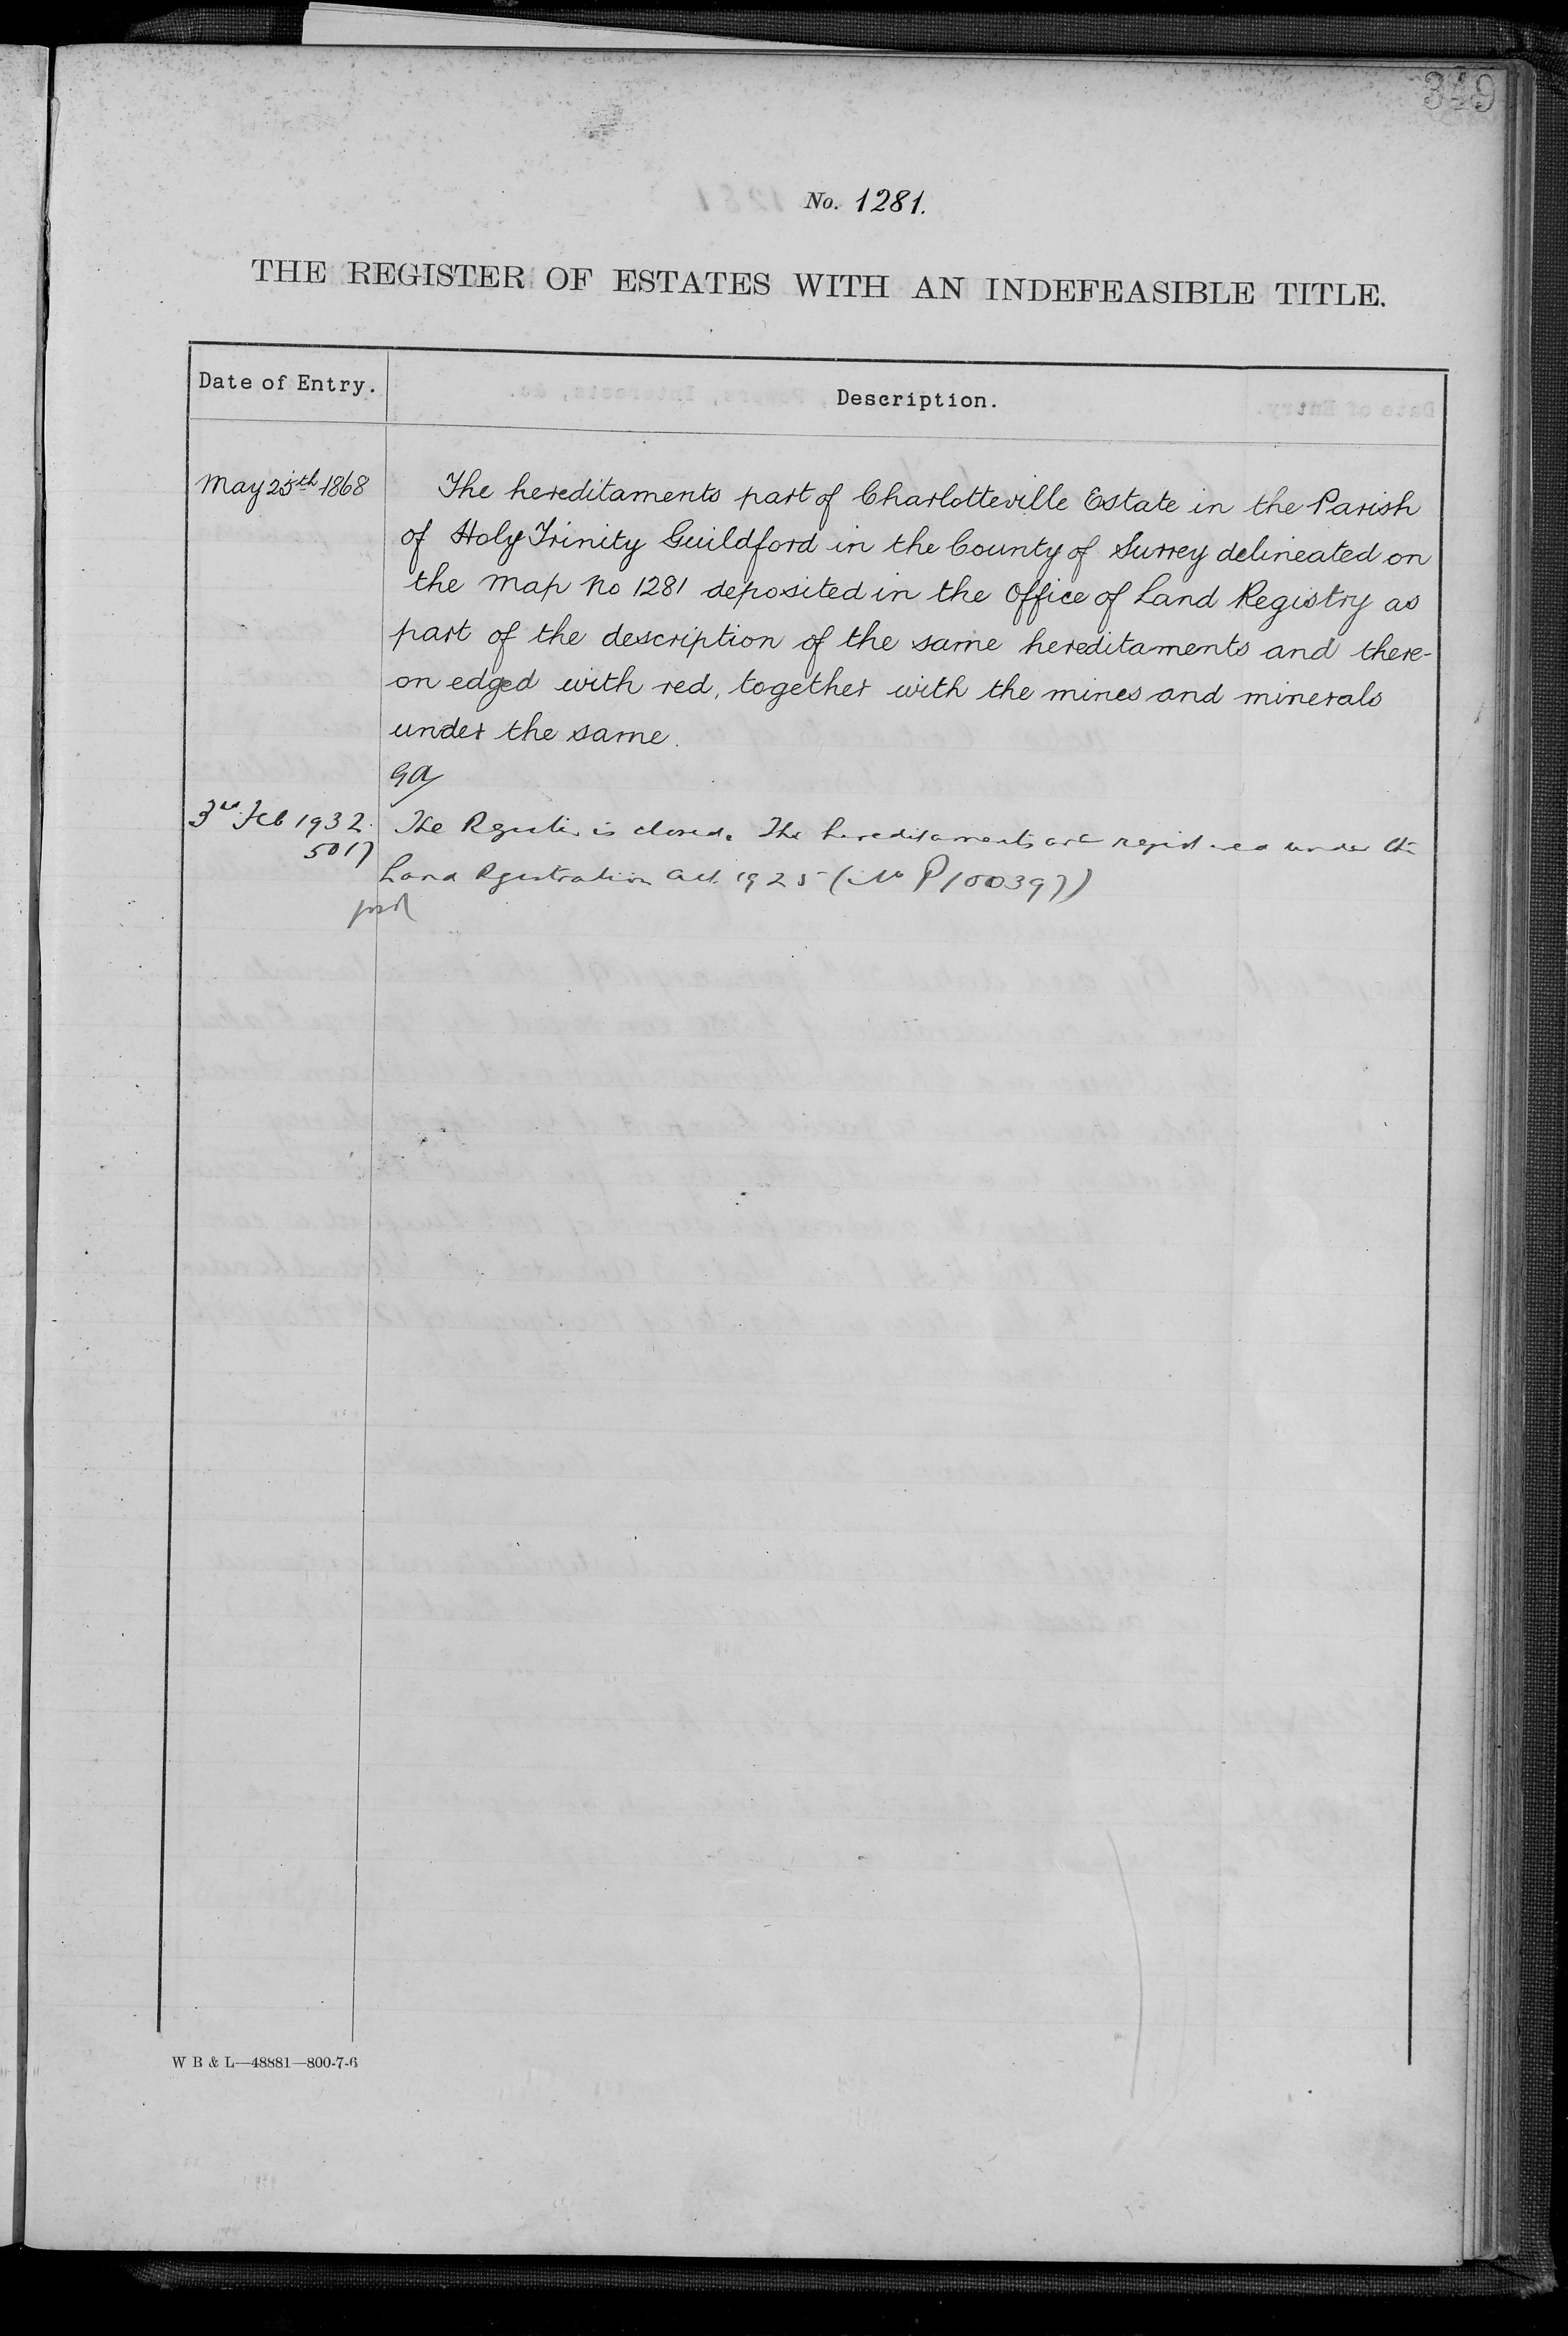 349
No. 1281.
THE REGISTER OF ESTATES WITH AN INDEFEASIBLE TITLE.
Date of Entry.
Description.
May 25th 1868
The hereditaments part of Charlotteville Estate in the Parish
of Holy Trinity Guildford in the County of Surrey delineated on
the Map No 1281 deposited in the Office of Land Registry as
part of the description of the same hereditaments and there-
on edged with red, together with the mines and minerals
under the same.
3rd Feb 1932.
The Register is closed. The hereditaments are registered under the
5017
Land Registration Act. 1925 (No P100397)
W B & L—48881—800-7-6